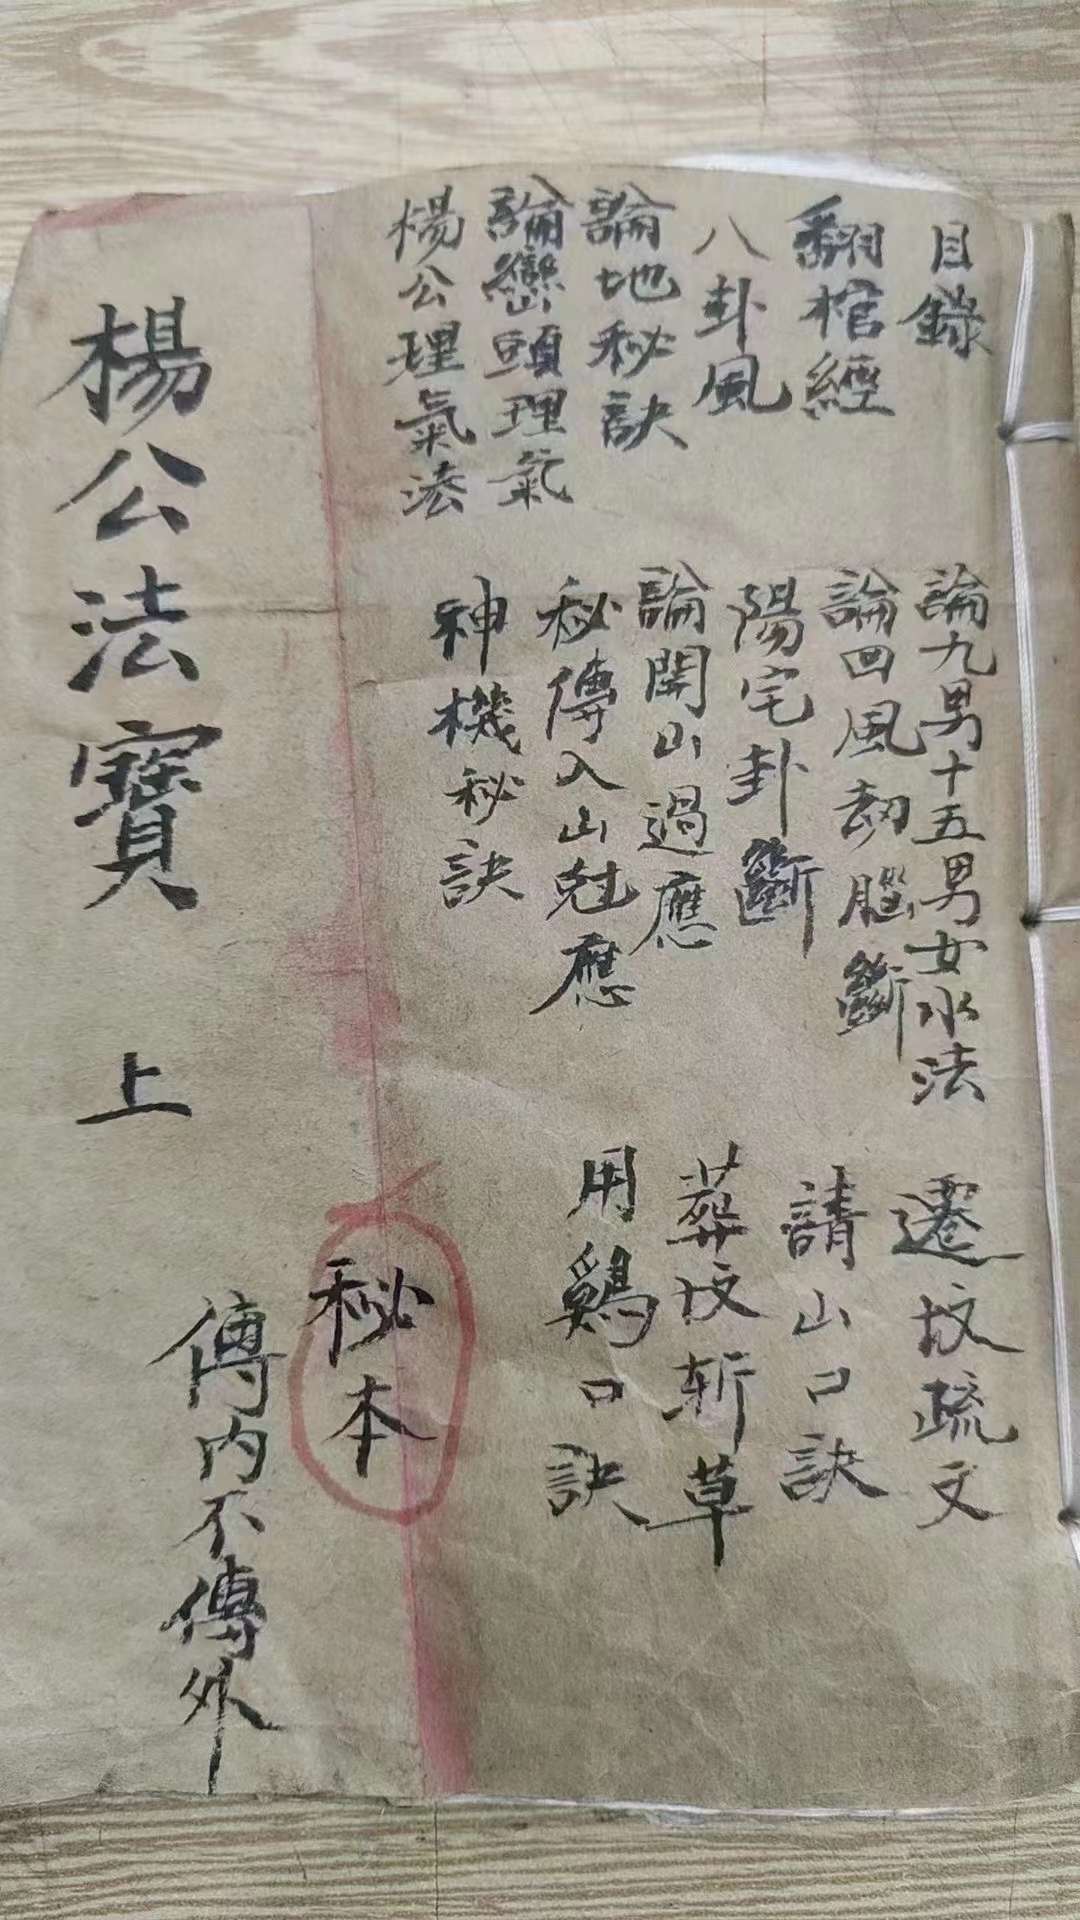 目錄
翻棺經
八卦風
論地秘訣
論巒頭理氣
楊公理氣法
論九男十五男女水法
論回風劫腦斷
陽宅卦斷
論開山過應
秘傳入山尅應
神機秘訣
遷坟疏文
請山口訣
葬坟斬草
用鷄口訣
秘本
傳内不傳外
楊公法寶 上